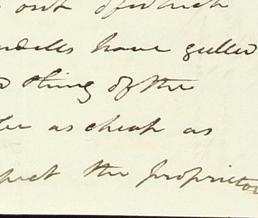 out of which
have gulled
thing of the
as cheap as
the proprietor